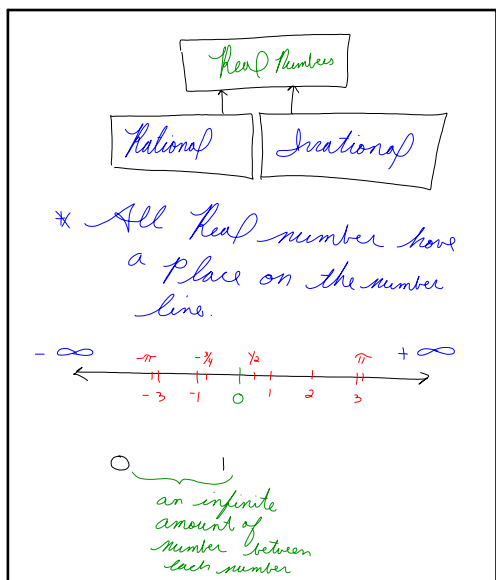 Real Numbers
Rational Irrational
* All Real number have
a Place on the number
line.
- ∞ -π -3/4 1/2 π + ∞
-3 -1 0 1 2 3
0 1
an infinite
amount of
number between
each number